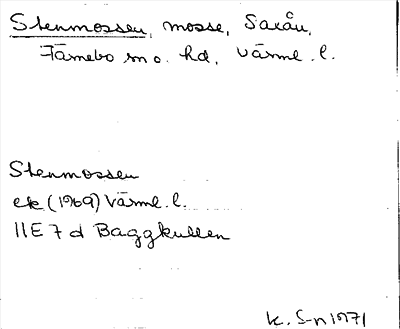 Stenmossen, mosse, Saxån,
Färnebo sn o. hd, Värml. l.
Stenmossen
ek (1969) Värml. l.
11E 7 d Baggkullen
K. S-n 1971